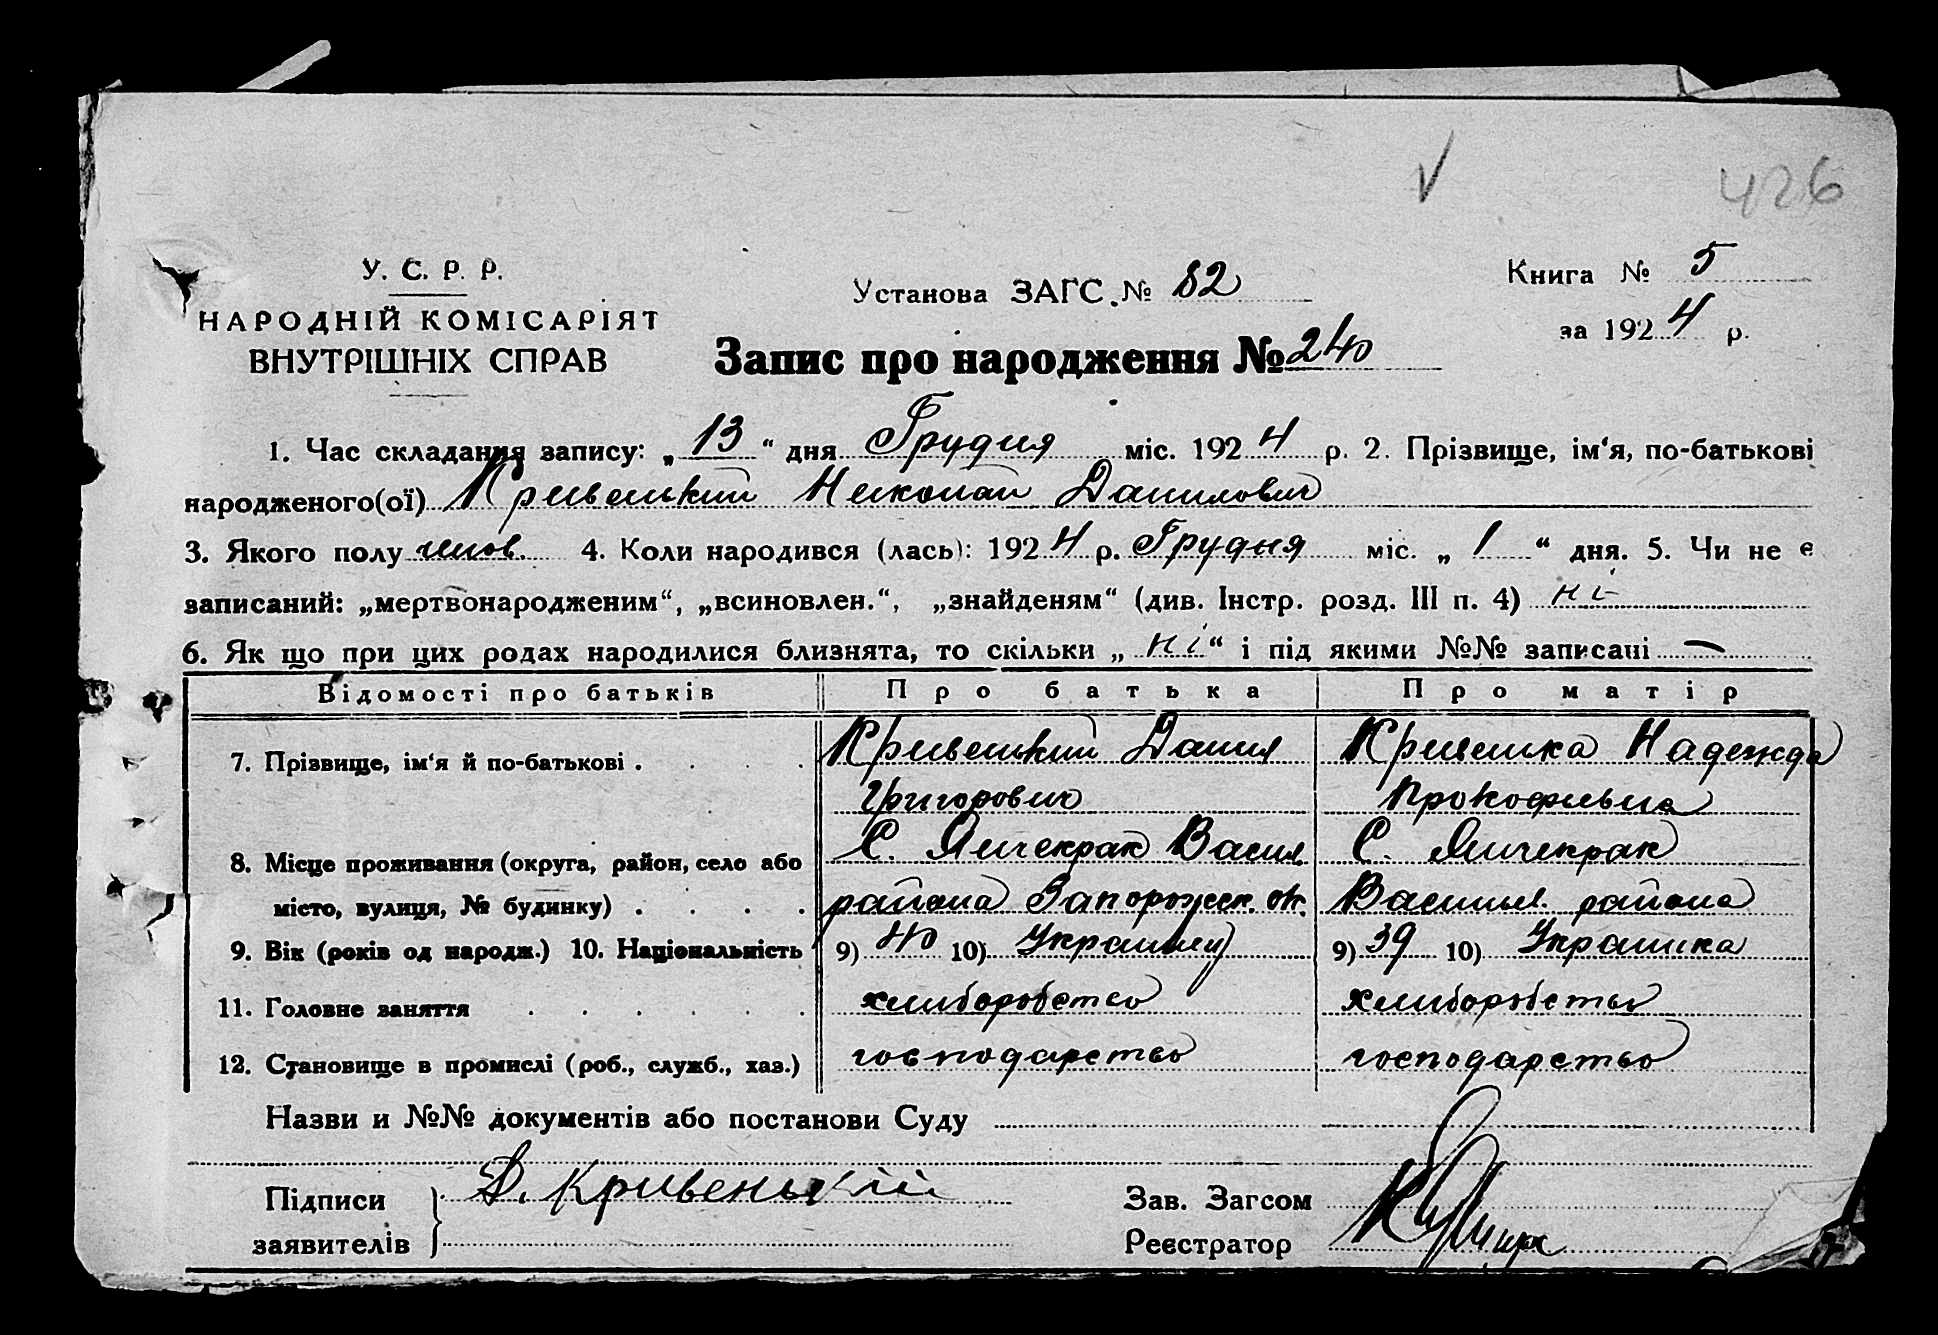 426
У. С. Р. Р.
НАРОДНІЙ КОМІСАРІЯТ
ВНУТРІШНІХ СПРАВ
Установа ЗАГС № 82
Запис про народження № 240
Книга № 5
за 1924 р.
1. Час складання запису: „13“ дня Грудня міс. 1924 р. 2. Прізвище, ім‘я, по-батькові
народженого(ої) Кривенький Николай Данилович
3. Якого полу чолов. 4. Коли народився (лась): 1924 р. Грудня міс. „1“ дня. 5. Чи не є
записаний: „мертвонародженим“, „всиновлен.“, „знайденям“ (див. Інстр. розд. III п. 4) ні
6. Як що при цих родах народилися близнята, то скільки „ні“ і під якими №№ записані —
Відомості про батьків Про батька Про матір
7. Прізвище, ім‘я й по-батькові . . . . Кривенький Данил Кривенька Надежда
Григорович Прокофьевна
8. Місце проживання (округа, район, село або С. Янчекрак Васил. С. Янчекрак
місто, вулиця, № будинку) . . . . района Запорожск. ок. Васильев. района
9. Вік (років од народж.) 10. Національність 9) 40 10) Украинец 9) 39 10) Украинка
11. Головне заняття . . . . . . хлиборобство хлиборобство
12. Становище в промислі (роб., служб., хаз.) господарство господарство
Назви и №№ документів або постанови Суду
Підписи Д. Кривенький Зав. Загсом
заявителів Реєстратор